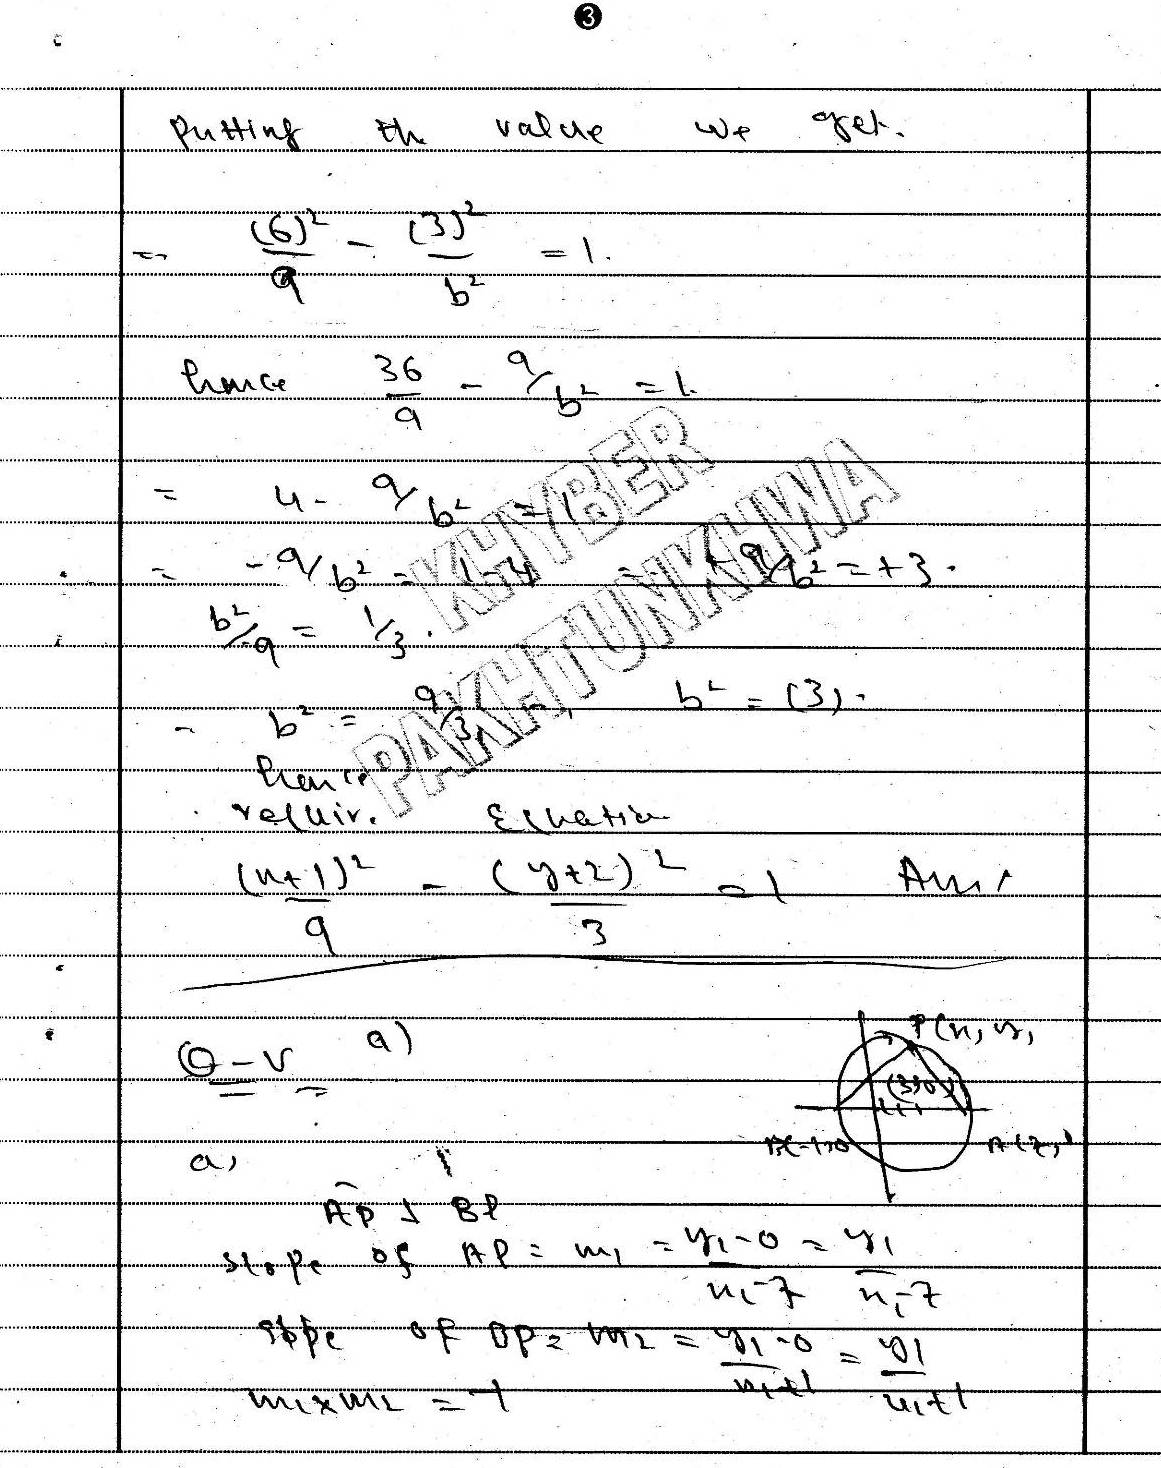 3
Putting the value we get.
= (6)²/9 - (3)²/b² = 1.
hence 36/9 - 9/b² = 1.
= 4 - 9/b² = 1
= -9/b² = 1-4 +9/b² = +3.
b²/9 = 1/3.
b² = 9/3, b² = (3).
hence
requir. Equation
(x+1)²/9 - (y+2)²/3 = 1 Ans
KHYBER
PAKHTUNKHWA
Q-V a)
P(x, y,
(3,0)
B(-1,0 A(7,
a,
AP ⊥ BP
slope of AP = m₁ = y₁-0/x₁-7 = y₁/x₁-7
slope of BP = m₂ = y₁-0/x₁+1 = y1/x₁+1
m₁×m₂ = -1